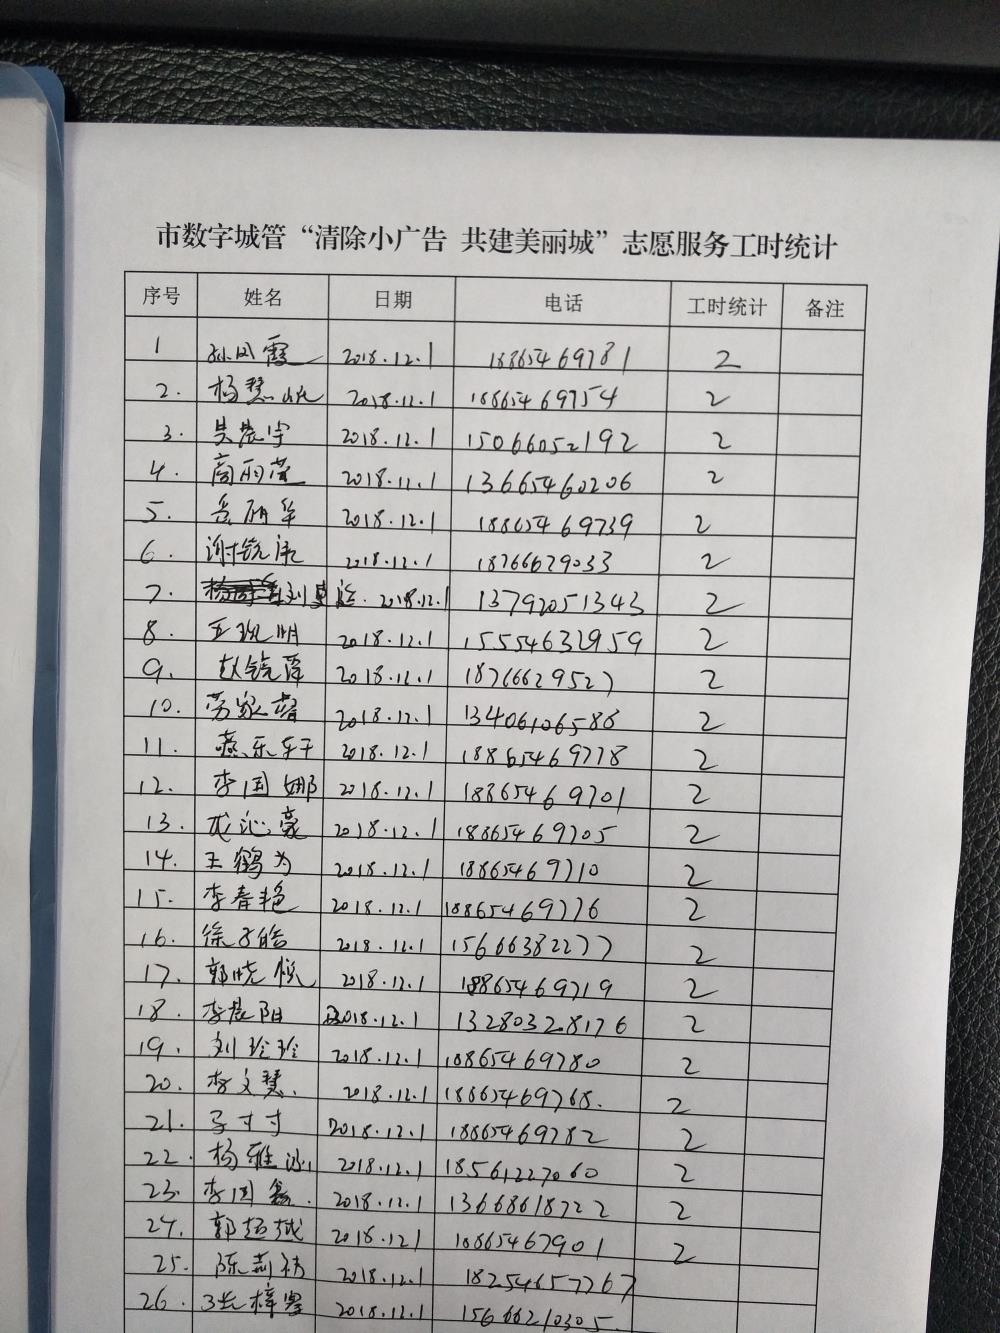 市数字城管“清除小广告 共建美丽城”志愿服务工时统计
序号 姓名 日期 电话 工时统计 备注
1 孙凤霞 2018.12.1 18865469781 2
2. 杨慧 2018.12.1 18865469754 2
3. 吴晨宇 2018.12.1 15066052192 2
4. 高丽莹 2018.11.1 13665460206 2
5. 岳丽华 2018.12.1 18865469739 2
6. 谢锐 2018.12.1 18766629033 2
7. 刘 2018.12.1 13792051343 2
8. 王 明 2018.12.1 15554632959 2
9. 赵锐泽 2018.12.1 18766629527 2
10. 劳家 2018.12.1 13406106586 2
11. 燕乐轩 2018.12.1 18865469778 2
12. 李国娜 2018.12.1 18865469701 2
13. 成沁豪 2018.12.1 18865469705 2
14. 王鹤为 2018.12.1 18865469710 2
15. 李春艳 2018.12.1 18865469776 2
16. 徐子皓 2018.12.1 15666382277 2
17. 郭晓悦 2018.12.1 18865469719 2
18. 李晨阳 2018.12.1 13280328176 2
19. 刘玲玲 2018.12.1 18865469780 2
20. 李文慧. 2018.12.1 18865469768. 2
21. 寸寸 2018.12.1 18865469782 2
22. 杨雅 2018.12.1 18561227060 2
23. 李国鑫. 2018.12.1 13668618722 2
24. 郭超越 2018.12.1 18865467901 2
25. 陈莉 2018.12.1 18254657267
26. 张梓 2018.12.1 15666210305.